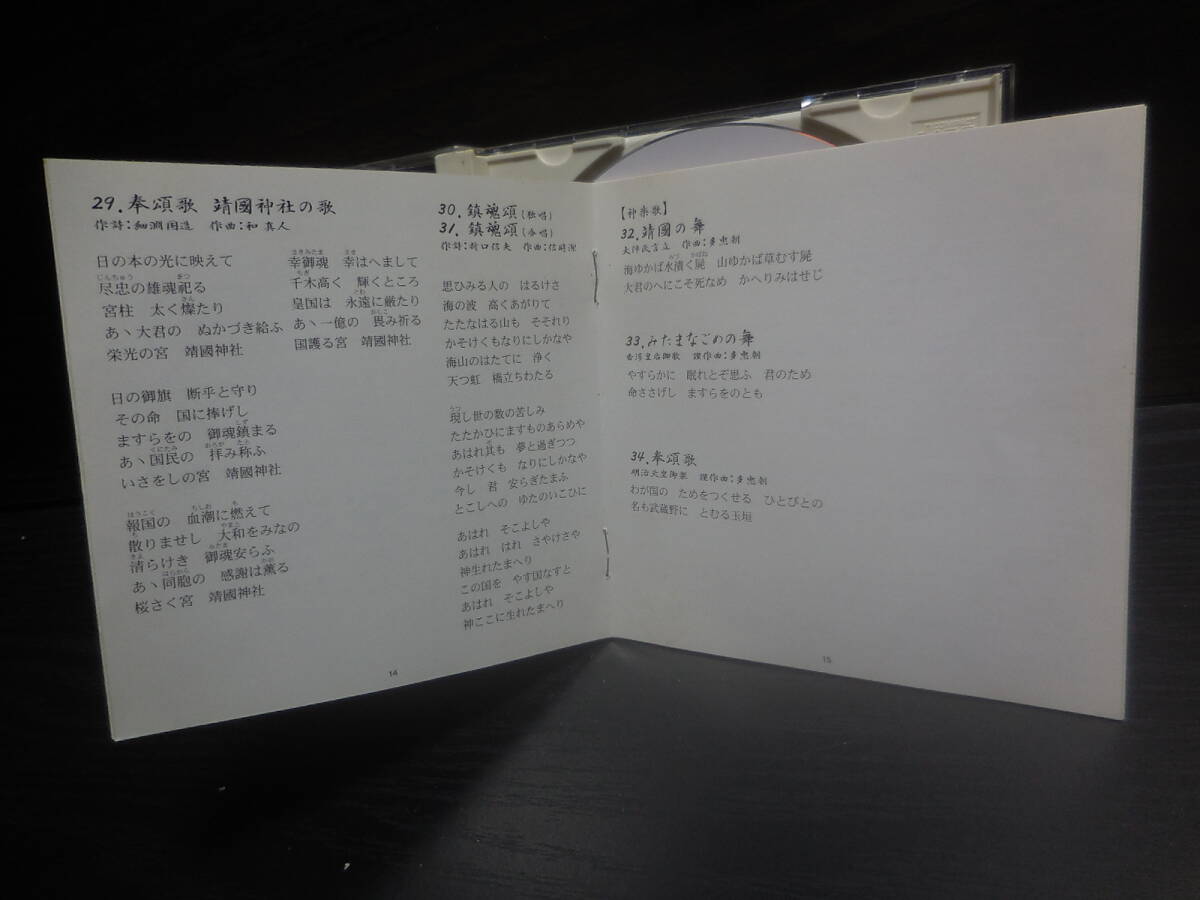 29.奉頌歌 靖國神社の歌
作詩:細淵国造 作曲:和真人
日の本の光に映えて
尽忠の雄魂祀る
宮柱 太く燦たり
あゝ大君の ぬかづき給ふ
栄光の宮 靖國神社
日の御旗 断乎と守り
その命 国に捧げし
ますらをの 御魂鎮まる
あゝ国民の 拝み称ふ
いさをしの宮 靖國神社
報国の 血潮に燃えて
散りませし 大和をみなの
清らけき 御魂安らふ
あゝ同胞の 感謝は薫る
桜さく宮 靖國神社
幸御魂 幸はへまして
千木高く 輝くところ
皇国は 永遠に厳たり
あゝ一億の 畏み祈る
国護る宮 靖國神社
14
30.鎮魂頌(独唱)
31.鎮魂頌(合唱)
作詩:折口信夫 作曲:信時潔
思ひみる人の はるけさ
海の波 高くあがりて
たたなはる山も そそれり
かそけくもなりにしかなや
海山のはたてに 浄く
天つ虹 橋立ちわたる
現し世の数の苦しみ
たたかひにますものあらめや
あはれ其も 夢と過ぎつつ
かそけくも なりにしかなや
今し 君 安らぎたまふ
とこしへの ゆたのいこひに
あはれ そこよしや
あはれ はれ さやけさや
神生れたまへり
この国を やす国なすと
あはれ そこよしや
神ここに生れたまへり
【神楽歌】
32.靖國の舞
大伴氏言立 作曲:多忠朝
海ゆかば水漬く屍 山ゆかば草むす屍
大君のへにこそ死なめ かへりみはせじ
33.みたまなごめの舞
香淳皇后御歌 謹作曲:多忠朝
やすらかに 眠れとぞ思ふ 君のため
命ささげし ますらをのとも
34.奉頌歌
明治天皇御製 謹作曲:多忠朝
わが国の ためをつくせる ひとびとの
名も武蔵野に とむる玉垣
15